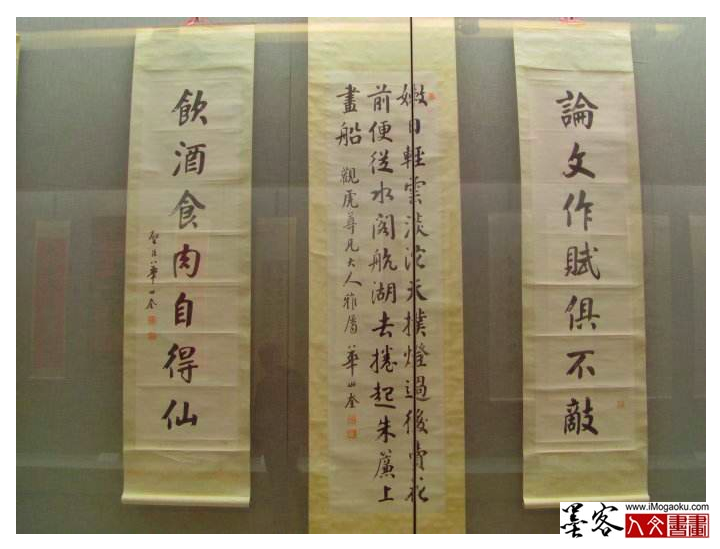 論文作賦俱不敵
嫩日輕雲淡沱天撲燈過後賣花
前便從水閣航湖去捲起朱簾上
畫船
觀虎尊兄大人雅屬 華世奎
飲酒食肉自得仙
華世奎
墨客
www.iMogaoku.com
人文書畫